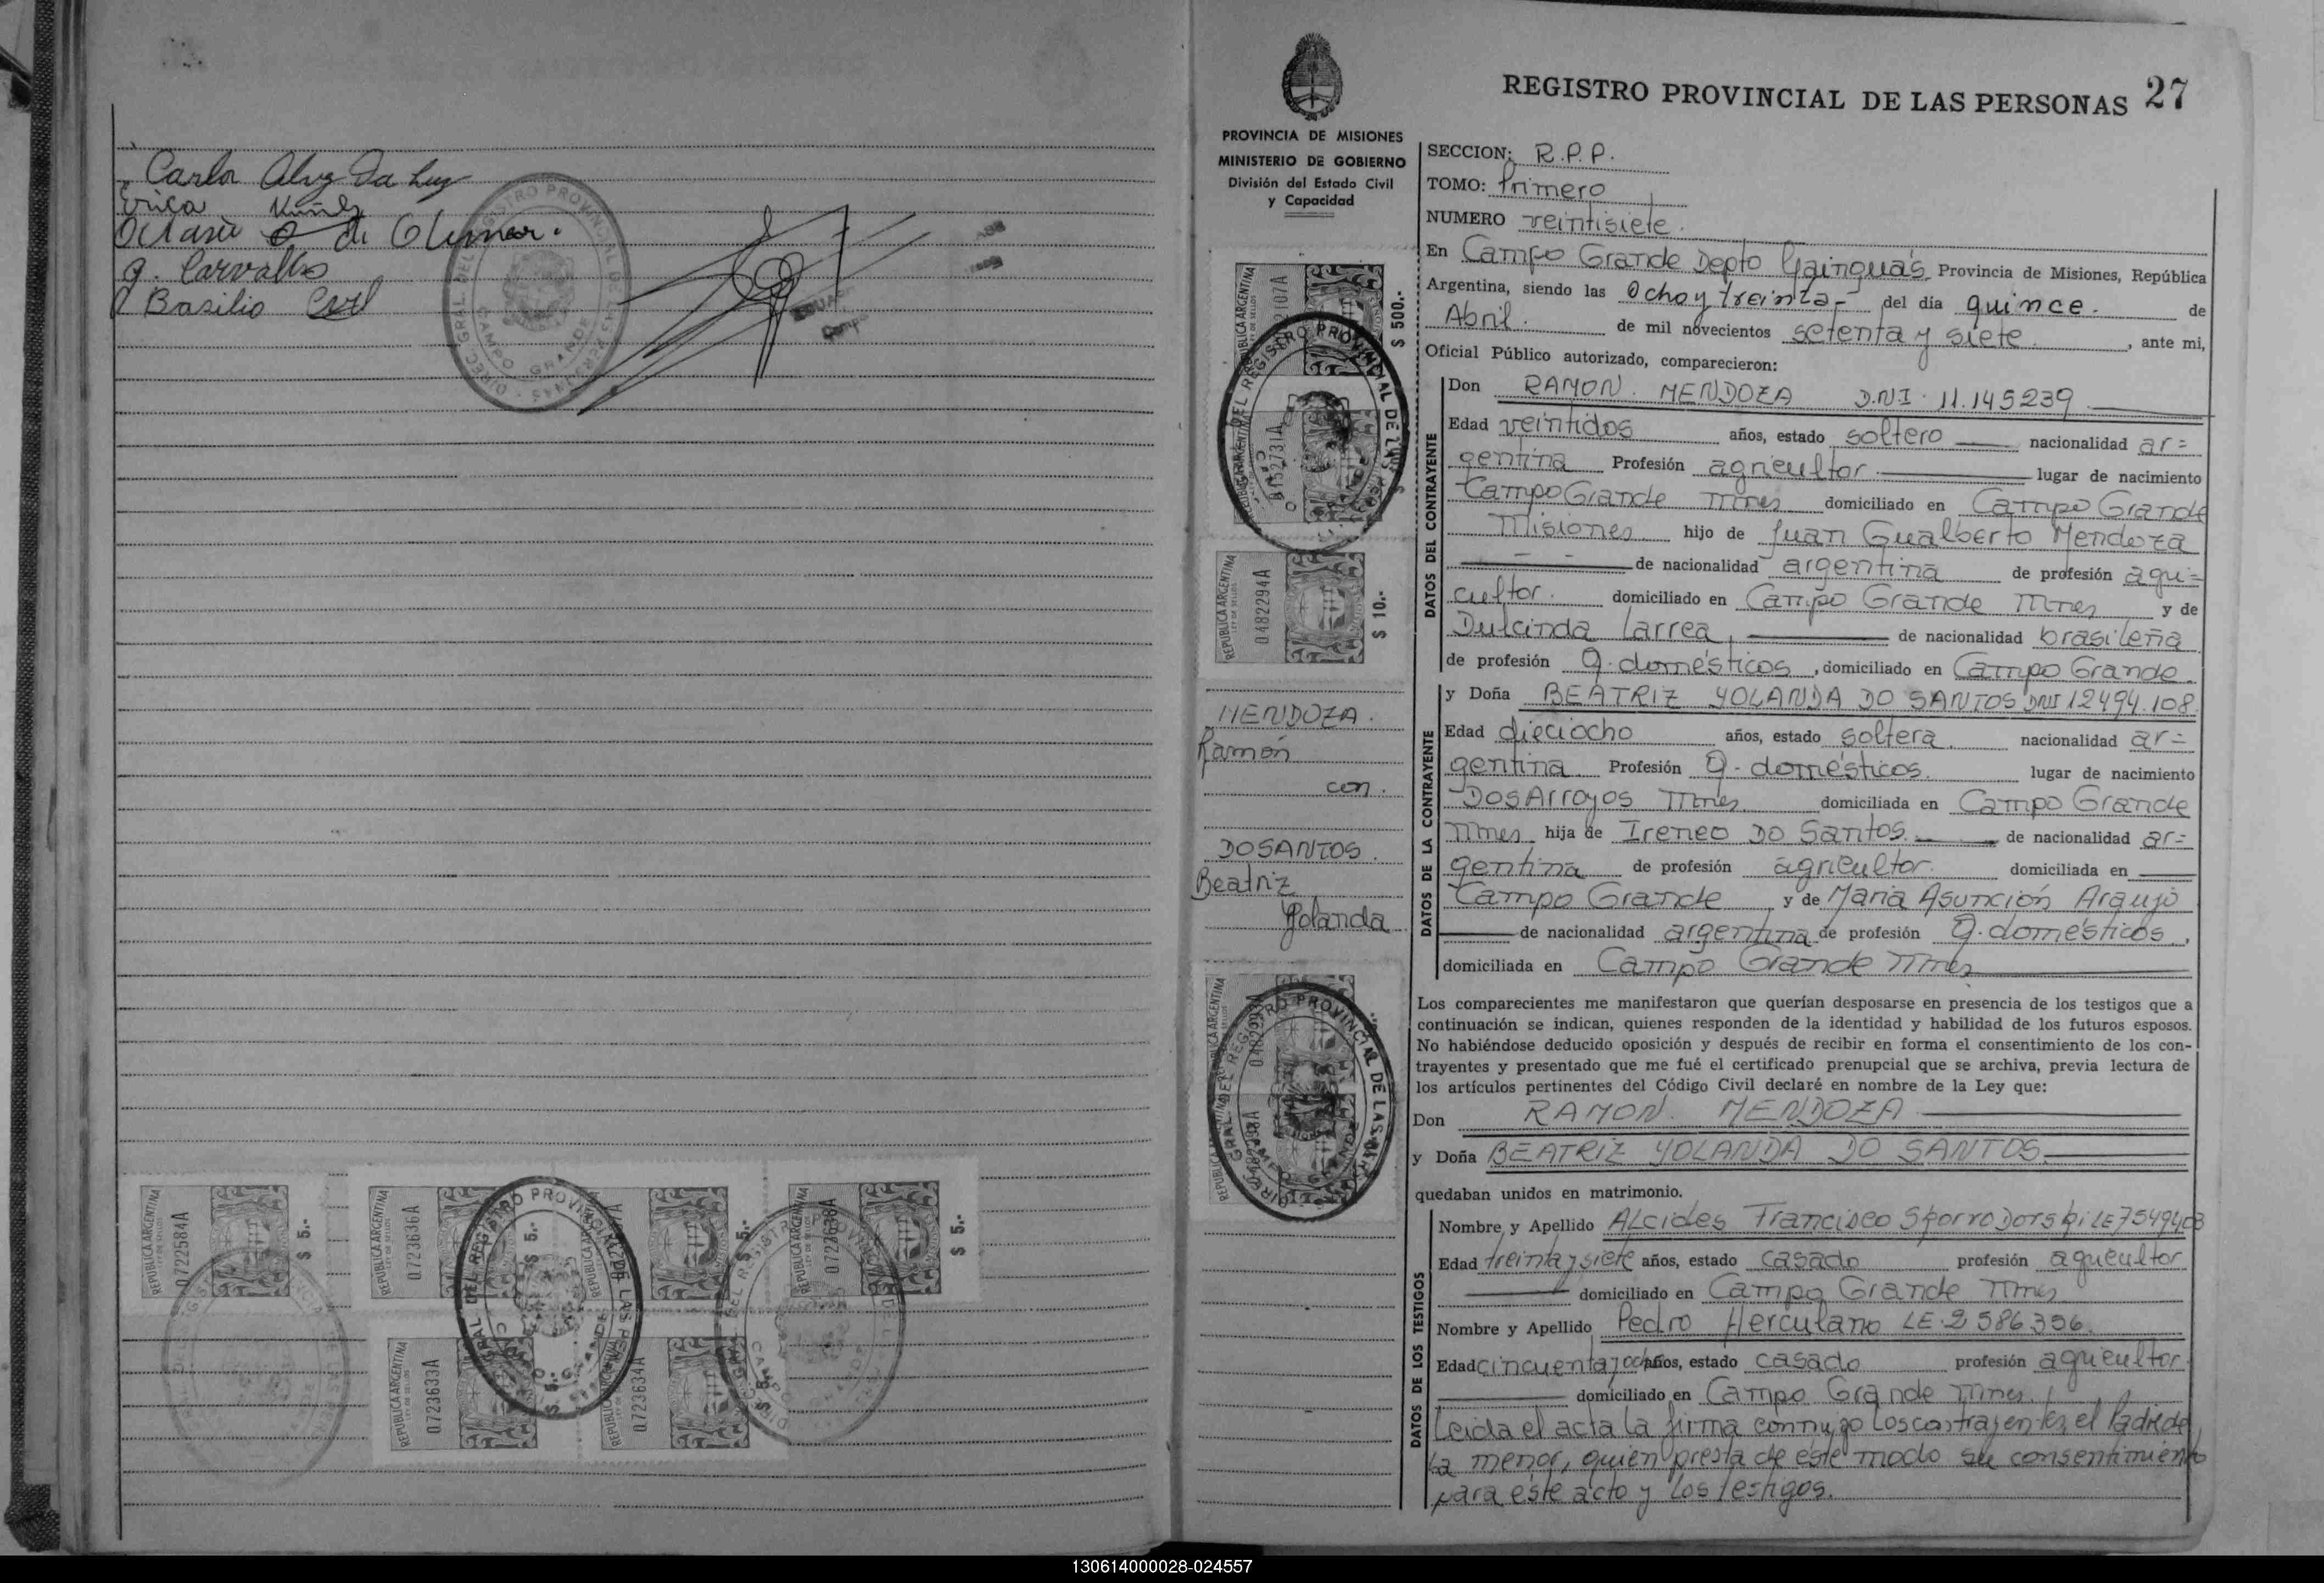 Carlos Alvez Da Luz
Erica Nuñez
Octavio O. di Olimar.
g. Carvallo
Basilio
DIREC. GRAL. DEL REGISTRO PROVINCIAL DE LAS PERSONAS
CAMPO GRANDE
REPUBLICA ARGENTINA
LEY DE SELLOS
0722584A
$ 5.-
REPUBLICA ARGENTINA
LEY DE SELLOS
0723636A
$ 5.-
REPUBLICA ARGENTINA
$ 5.-
REPUBLICA ARGENTINA
LEY DE SELLOS
0723638A
$ 5.-
REPUBLICA ARGENTINA
LEY DE SELLOS
0723633A
$ 5.-
REPUBLICA ARGENTINA
LEY DE SELLOS
0723634A
$ 5.-
REGISTRO PROVINCIAL DE LAS PERSONAS 27
PROVINCIA DE MISIONES
MINISTERIO DE GOBIERNO
División del Estado Civil
y Capacidad
REPUBLICA ARGENTINA
$ 500.-
REPUBLICA ARGENTINA
LEY DE SELLOS
0482294A
$ 10.-
MENDOZA.
Ramón
con.
DOSANTOS.
Beatriz
Yolanda
SECCION: R.P.P.
TOMO: Primero
NUMERO veintisiete.
En Campo Grande Depto Gainguás. Provincia de Misiones, República
Argentina, siendo las Ocho y treinta- del día quince. de
Abril. de mil novecientos setenta y siete , ante mi,
Oficial Público autorizado, comparecieron:
DATOS DEL CONTRAYENTE
Don RAMON. MENDOZA D.N.I. 11.145239
Edad veintidos años, estado soltero nacionalidad ar=
gentina Profesión agricultor lugar de nacimiento
Campo Grande Mnes domiciliado en Campo Grande
Misiones hijo de Juan Gualberto Mendoza
de nacionalidad argentina de profesión agri=
cultor. domiciliado en Campo Grande Mnes y de
Dulcinda Larrea, de nacionalidad brasileña
de profesión q. domésticos , domiciliado en Campo Grande.
DATOS DE LA CONTRAYENTE
y Doña BEATRIZ YOLANDA DO SANTOS DNI 12494.108
Edad dieciocho años, estado soltera. nacionalidad ar=
gentina. Profesión q. domésticos. lugar de nacimiento
Dos Arroyos Mnes domiciliada en Campo Grande
Mnes hija de Ireneo Do Santos. de nacionalidad ar=
gentina de profesión agricultor. domiciliada en
Campo Grande y de Maria Asunción Araujo
de nacionalidad argentina de profesión q. domésticos,
domiciliada en Campo Grande Mnes
Los comparecientes me manifestaron que querían desposarse en presencia de los testigos que a
continuación se indican, quienes responden de la identidad y habilidad de los futuros esposos.
No habiéndose deducido oposición y después de recibir en forma el consentimiento de los con-
trayentes y presentado que me fué el certificado prenupcial que se archiva, previa lectura de
los artículos pertinentes del Código Civil declaré en nombre de la Ley que:
Don RAMON. MENDOZA
y Doña BEATRIZ YOLANDA DO SANTOS.
quedaban unidos en matrimonio.
DATOS DE LOS TESTIGOS
Nombre y Apellido Alcides Francisco Skorrodorski LE 7549403
Edad treinta y siete años, estado casado profesión agricultor
domiciliado en Campo Grande Mnes
Nombre y Apellido Pedro Herculano LE. 2586356.
Edad cincuenta y ocho años, estado casado profesión agricultor.
domiciliado en Campo Grande Mnes.
Leida el acta la firma conmigo los contrayentes, el Padre de
la menor, quien presta de este modo su consentimiento
para este acto y los testigos.
130614000028-024557